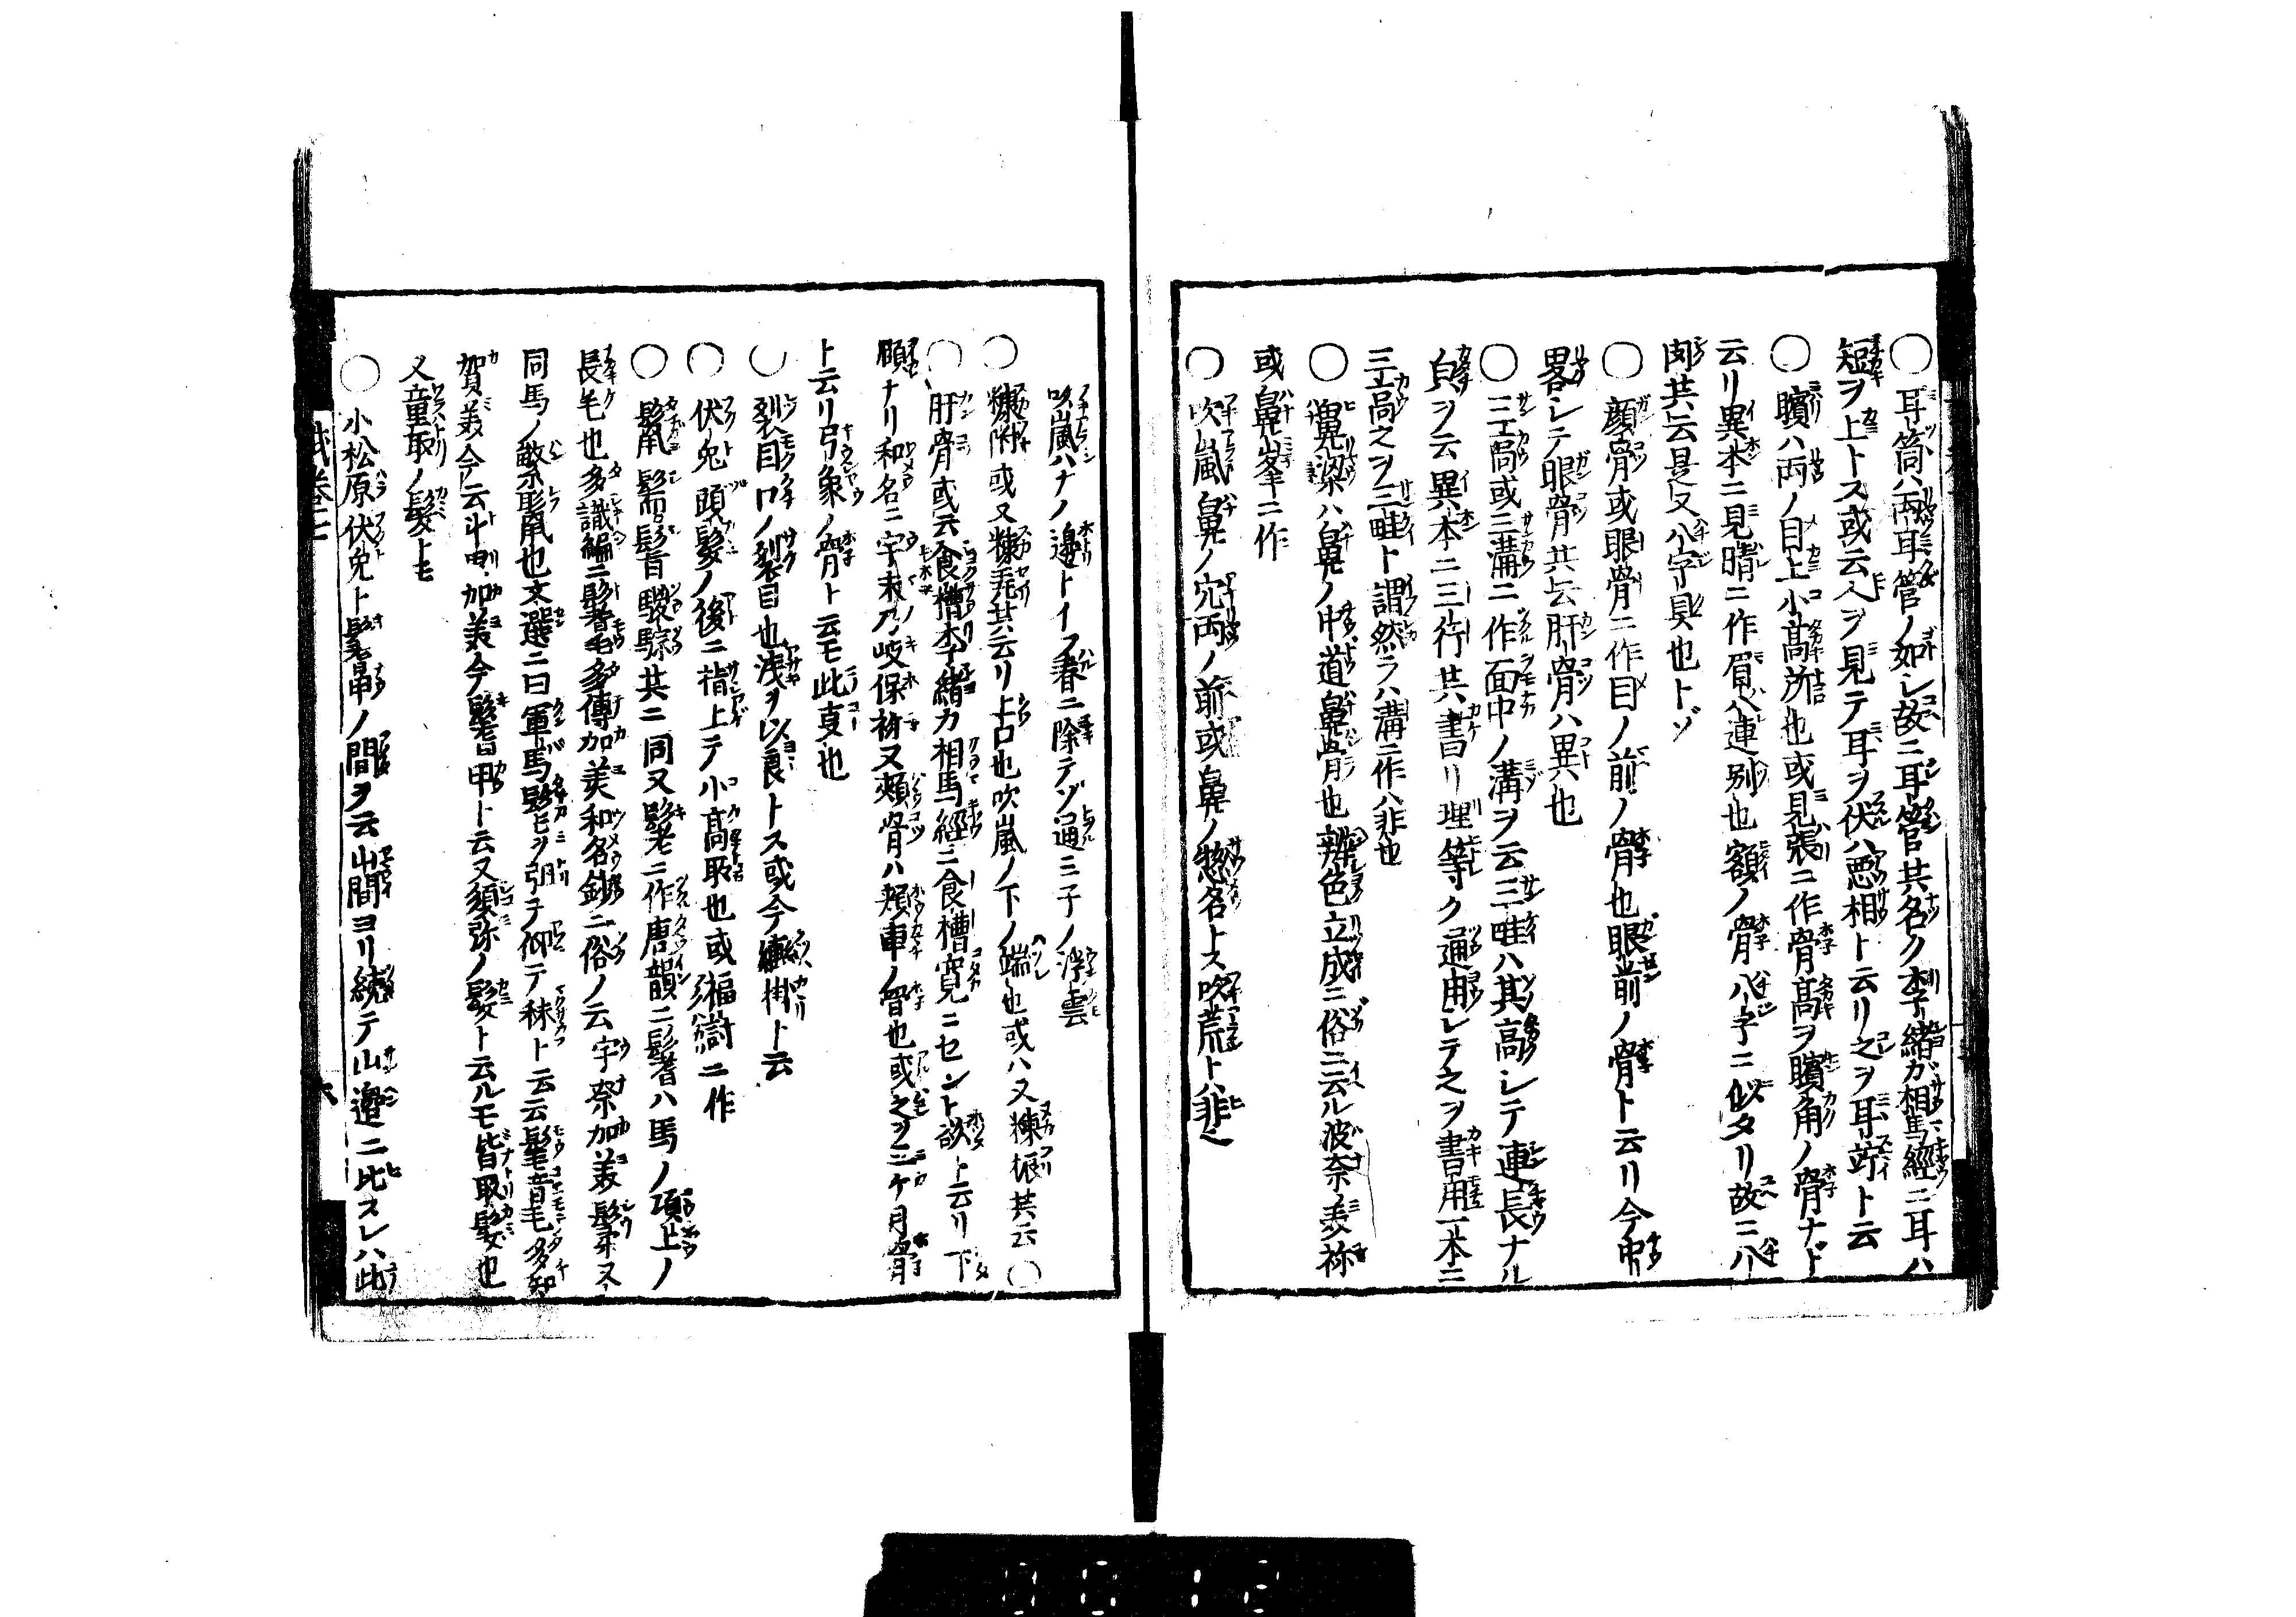 ○耳筒ハ両耳管ノ如シ故ニ耳管共名ク李緒ガ相馬經ニ耳ハ
短ヲ上トス或云人ヲ見テ耳ヲ伏ハ悪相ト云リ之ヲ耳ト云
○矉ハ両ノ目上小高所也或見張ニ作骨高ヲ矉角ノ骨ナド
云リ異本ニ見晴ニ作眉ハ連別也額ノ骨八字ニ似タリ故ニ八
肉共云是又八字具也トゾ
○顔骨或眼骨ニ作目ノ前ノ骨也眼前ノ骨ト云リ今中
畧シテ眼骨共云肝骨ハ異也
○三工高或三溝ニ作面中ノ溝ヲ云三畦ハ其高シテ連長ナル
貞ヲ云異本ニ三行共書リ理等ク通用シテ之ヲ書用一本ニ
三工高之ヲ三畦ト謂然ラハ溝ニ作ハ非也
○鼻梁ハ鼻ノ中道鼻骨也辨色立成ニ俗ニ云ル波奈美祢
或鼻峯ニ作
○吹嵐鼻ノ穴両ノ前或鼻ノ惣名トス吹荒トハ非也
吹嵐ハナノ邊トイフ春ニ除テゾ通ミ子ノ浮雲
○糠附或又糠毛共云リ上口也吹嵐ノ下ノ端也或ハ又糠振共云○
○肝骨或云食槽李緒カ相馬經ニ食槽寛ニセント欲ト云リ下
頤ナリ和名ニ宇末乃岐保祢又頰骨ハ頰車ノ骨也或之ヲ三ケ月骨
ト云リ弓象ノ骨ト云モ此㕝也
○裂目口ノ裂目也浅ヲ以良トス或今轡掛ト云
○伏兔頭髪ノ後ニ指上テ小高取也或福謝ニ作
○鬣髵鬐騣騌共ニ同又髦ニ作唐韻ニ鬐ハ馬ノ項上ノ
長毛也多識編ニ鬐毛多傳加美和名鈔ニ俗ノ云宇奈加美髦又
同馬ノ繁鬣也文選ニ曰軍馬髦ヲ引テ仰テ秣ト云云髦音毛多知
賀美今云斗利加美今鬐甲ト云又須弥ノ髪ト云ルモ皆取髪也
又童取ノ髪トモ
○小松原伏兔ト鬐甲ノ間ヲ云山間ヨリ続テ山邉ニ比スレハ此